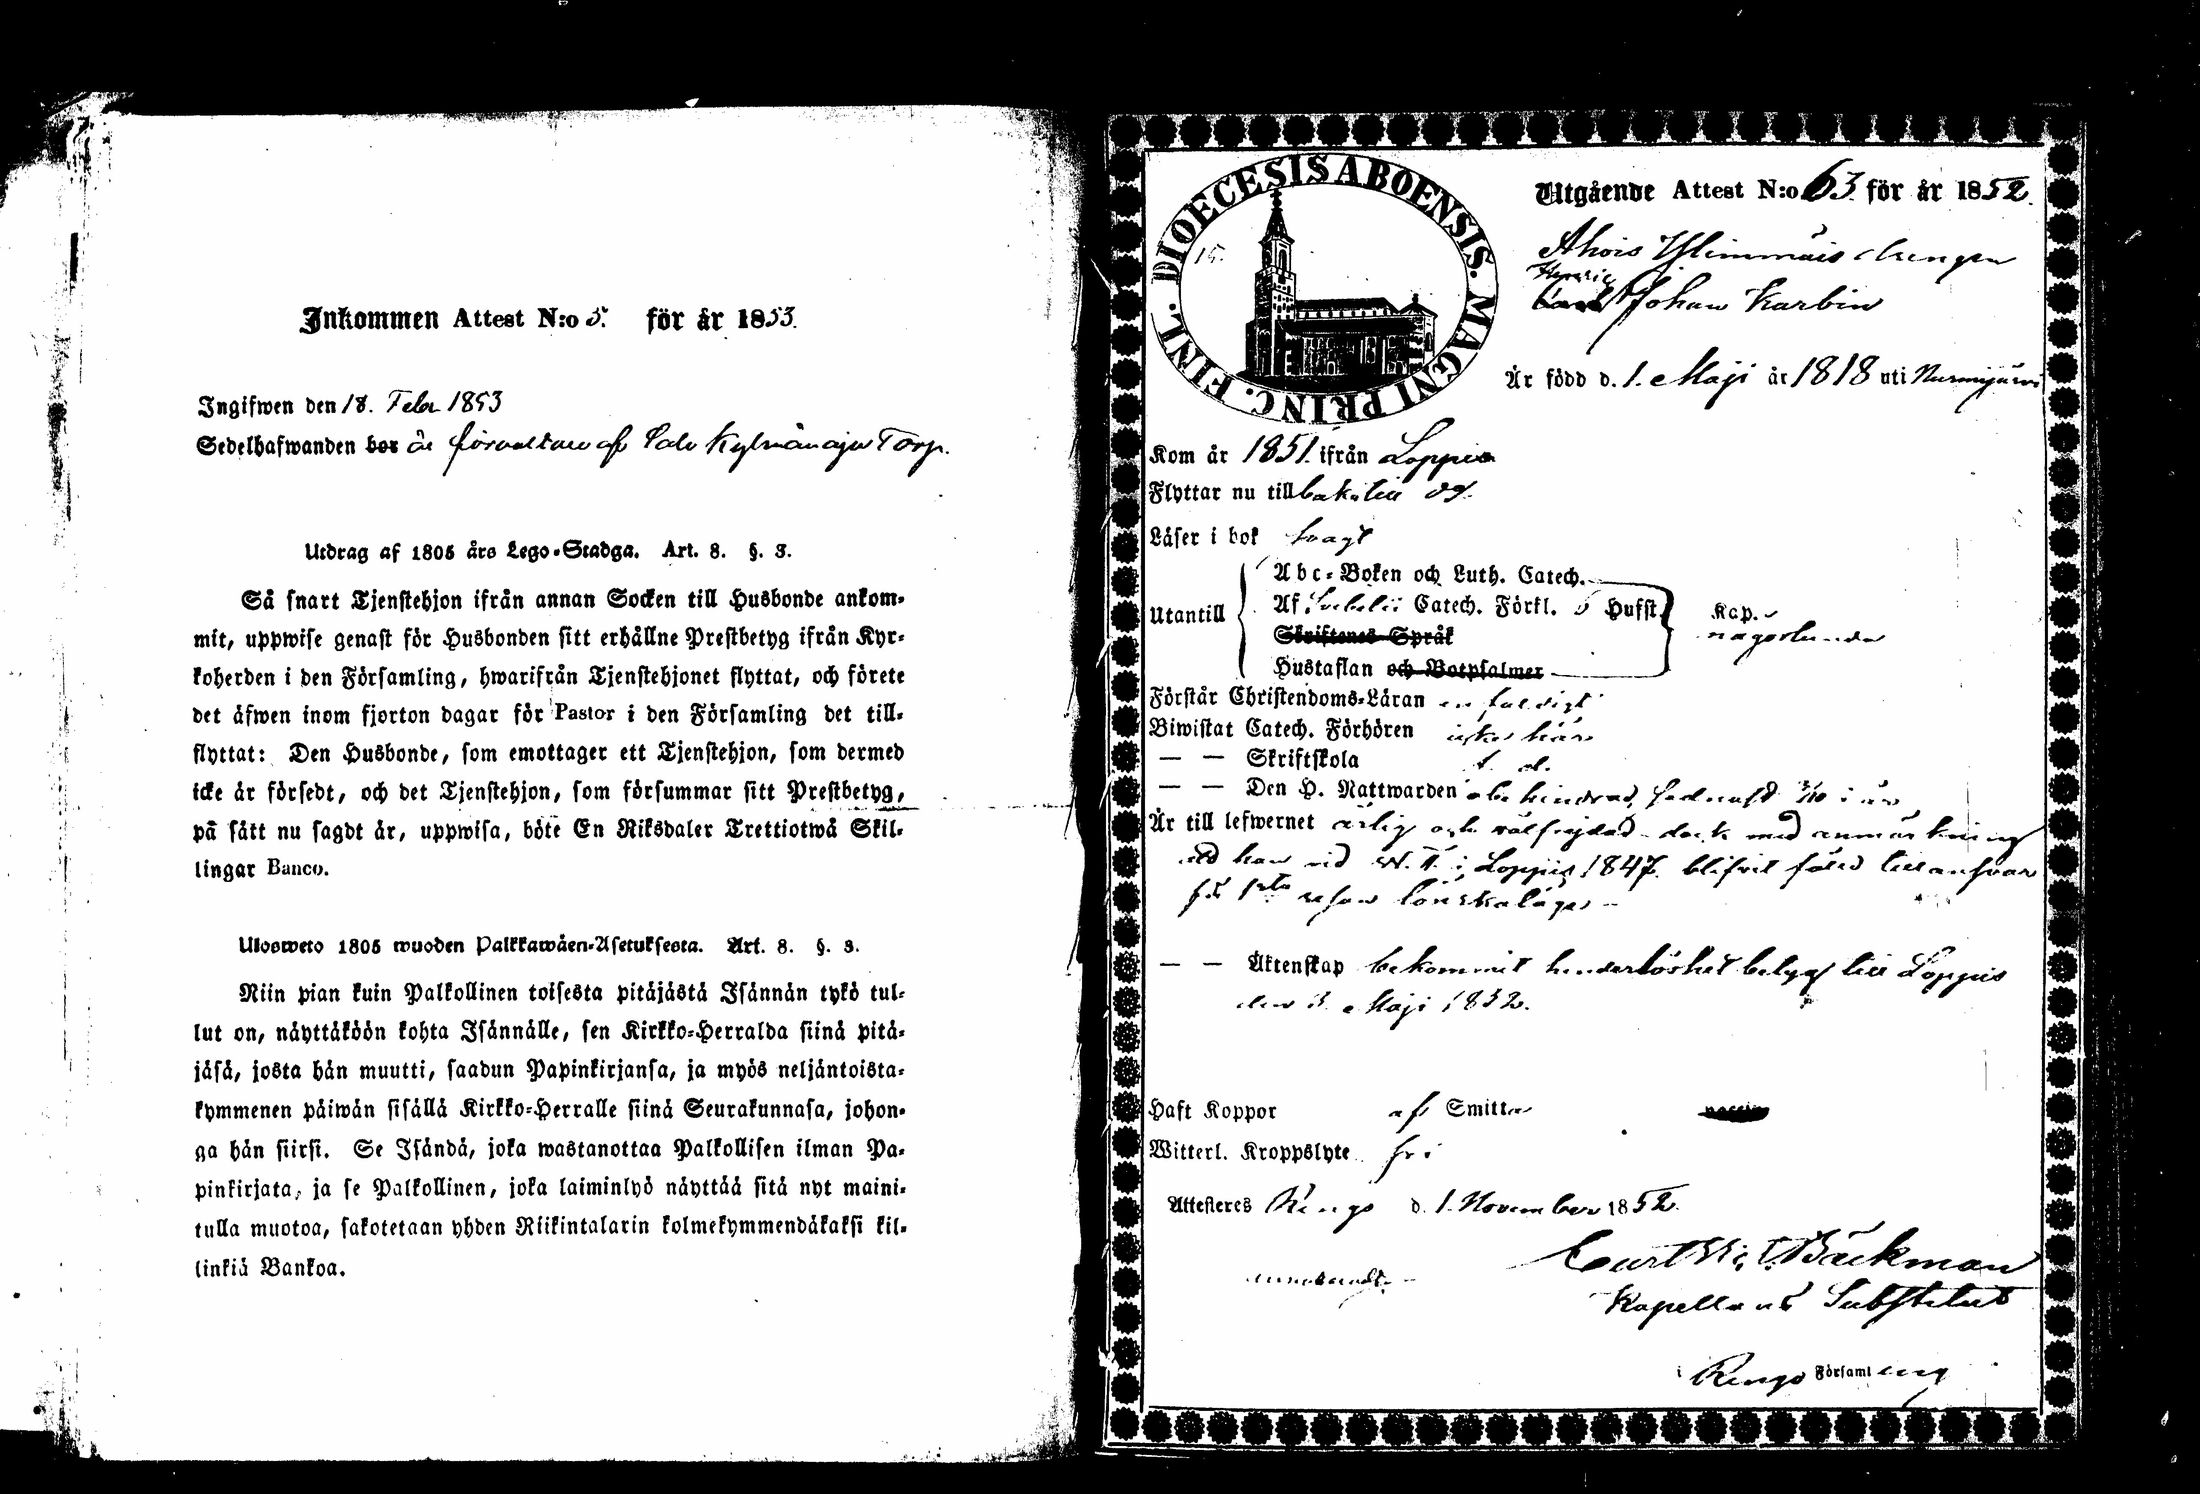 Inkommen Attest N:o 5. för år 1853.
Ingifwen den 18. Febr 1853
Sedelhafwanden bor är förvaltare af Torp.
Utdrag af 1805 års Lego-Stadga. Art. 8. §. 3.
Så snart Tjenstehjon ifrån annan Socken till Husbonde ankom-
mit, uppwise genast för Husbonden sitt erhållne Prestbetyg ifrån Kyr-
koherden i den Församling, hwarifrån Tjenstehjonet flyttat, och förete
det äfwen inom fjorton dagar för Pastor i den Församling det till-
flyttat: Den Husbonde, som emottager ett Tjenstehjon, som dermed
icke är försedt, och det Tjenstehjon, som försummar sitt Prestbetyg,
på sätt nu sagdt är, uppwisa, böte En Riksdaler Trettiotwå Skil-
lingar Banco.
Ulosweto 1805 wuoden Palkkawäen-Asetuksesta. Art. 8. §. 3.
Niin pian kuin Palkollinen toisesta pitäjästä Isännän tykö tul-
lut on, näyttäköön kohta Isännälle, sen Kirkko-Herralda siinä pitä-
jäsä, josta hän muutti, saadun Papinkirjansa, ja myös neljäntoista-
kymmenen päiwän sisällä Kirkko-Herralle siinä Seurakunnasa, johon-
ga hän siirsi. Se Isändä, joka wastanottaa Palkollisen ilman Pa-
pinkirjata, ja se Palkollinen, joka laiminlyö näyttää sitä nyt maini-
tulla muotoa, sakotetaan yhden Riikintalarin kolmekymmendäkaksi kil-
linkiä Bankoa.
DIOECESIS ABOENSIS. MAGNI PRINC. FINL.
Utgående Attest N:o 63. för år 1852.
Ahois drengen
Henric
Carl Johan Karbin
Är född d. 1. Maji år 1818 uti Nurmijärvi
Kom år 1851. ifrån Loppis
Flyttar nu tillbaka till
Läser i bok svagt
Utantill
Abc-Boken och Luth. Catech.
Af Svebelii Catech. Förkl. 5 Hufst.
Skriftenes Språk
Hustaflan och Botpsalmer
Kap.
någorlunda
Förstår Christendoms-Läran enfaldigt
Biwistat Catech. Förhören icke här
— — Skriftskola
— — Den H. Nattwarden obehindrad, sednast 3/10 i år
Är till lefwernet ärlig och välfrejdad dock med anmärkning
att han vid W. T. i Loppis 1847. blifvit fäld till ansvar
för 1sta resan lönskaläge
— — Äktenskap bekommit hinderlöshet betyg till Loppis
den 3. Maji 1852.
Haft Koppor af Smitta
Witterl. Kroppslyte fri
Attesteres Rengo d. 1. November 1852.
Bäckman
Kapellans Substitut
i Rengo Församling